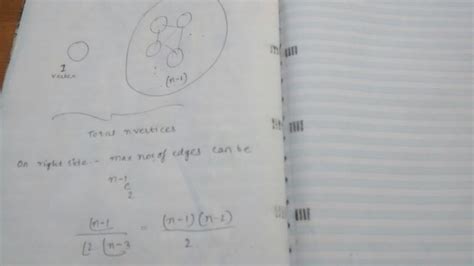 1
vertex
(n-1)
Total n vertices
On right side - max no. of edges can be
n-1
C
2
(n-1 = (n-1)(n-2)
(2 (n-3 2